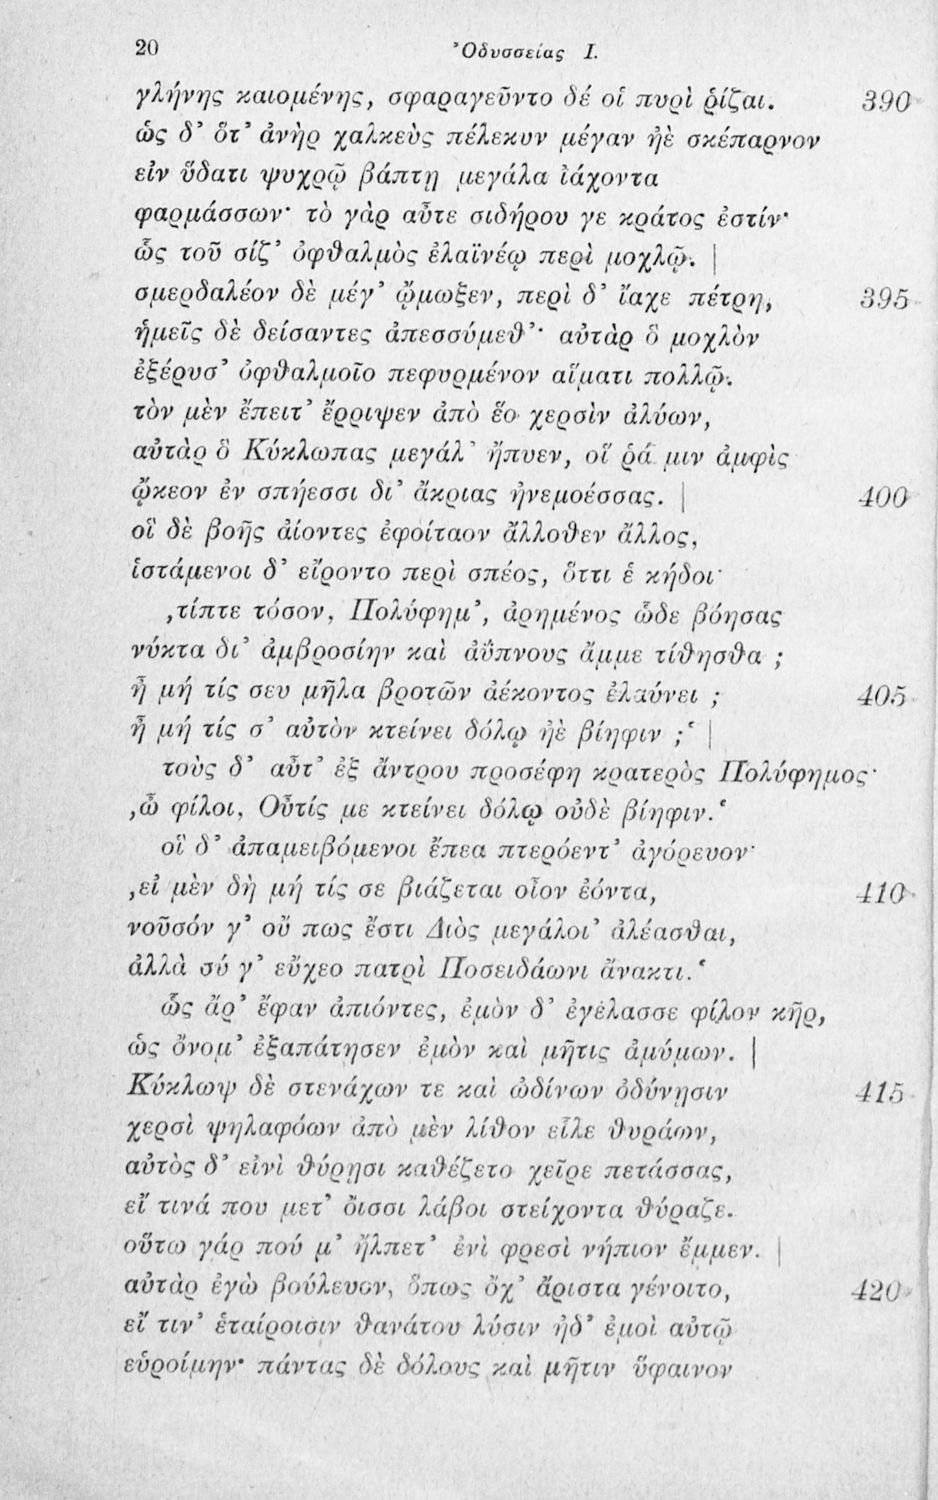 20 Ὀδυσσείας Ι.
γλήνης καιομένης, σφαραγεῦντο δέ οἱ πυρὶ ῥίζαι. 390
ὡς δ’ ὅτ’ ἀνὴρ χαλκεὺς πέλεκυν μέγαν ἠὲ σκέπαρνον
εἰν ὕδατι ψυχρῷ βάπτῃ μεγάλα ἰάχοντα
φαρμάσσων· τὸ γὰρ αὖτε σιδήρου γε κράτος ἐστίν·
ὣς τοῦ σίζ’ ὀφθαλμὸς ἐλαϊνέῳ περὶ μοχλῷ. |
σμερδαλέον δὲ μέγ’ ᾤμωξεν, περὶ δ’ ἴαχε πέτρη, 395
ἡμεῖς δὲ δείσαντες ἀπεσσύμεθ’· αὐτὰρ ὃ μοχλὸν
ἐξέρυσ’ ὀφθαλμοῖο πεφυρμένον αἵματι πολλῷ.
τὸν μὲν ἔπειτ’ ἔρριψεν ἀπὸ ἕο χερσὶν ἀλύων,
αὐτὰρ ὃ Κύκλωπας μεγάλ’ ἤπυεν, οἵ ῥά μιν ἀμφὶς
ᾤκεον ἐν σπήεσσι δι’ ἄκριας ἠνεμοέσσας. | 400
οἳ δὲ βοῆς ἀίοντες ἐφοίταον ἄλλοθεν ἄλλος,
ἱστάμενοι δ’ εἴροντο περὶ σπέος, ὅττι ἑ κήδοι·
‚τίπτε τόσον, Πολύφημ’, ἀρημένος ὧδε βόησας
νύκτα δι’ ἀμβροσίην καὶ ἀΰπνους ἄμμε τίθησθα ;
ἦ μή τίς σευ μῆλα βροτῶν ἀέκοντος ἐλαύνει ; 405
ἦ μή τίς σ’ αὐτὸν κτείνει δόλῳ ἠὲ βίηφιν ;‘ |
τοὺς δ’ αὖτ’ ἐξ ἄντρου προσέφη κρατερὸς Πολύφημος·
‚ὦ φίλοι, Οὖτίς με κτείνει δόλῳ οὐδὲ βίηφιν.‘
οἳ δ’ ἀπαμειβόμενοι ἔπεα πτερόεντ’ ἀγόρευον·
‚εἰ μὲν δὴ μή τίς σε βιάζεται οἶον ἐόντα, 410
νοῦσόν γ’ οὔ πως ἔστι Διὸς μεγάλοι’ ἀλέασθαι,
ἀλλὰ σύ γ’ εὔχεο πατρὶ Ποσειδάωνι ἄνακτι.‘
ὣς ἄρ’ ἔφαν ἀπιόντες, ἐμὸν δ’ ἐγέλασσε φίλον κῆρ,
ὡς ὄνομ’ ἐξαπάτησεν ἐμὸν καὶ μῆτις ἀμύμων. |
Κύκλωψ δὲ στενάχων τε καὶ ὠδίνων ὀδύνῃσιν 415
χερσὶ ψηλαφόων ἀπὸ μὲν λίθον εἷλε θυράων,
αὐτὸς δ’ εἰνὶ θύρῃσι καθέζετο χεῖρε πετάσσας,
εἴ τινά που μετ’ ὄισσι λάβοι στείχοντα θύραζε.
οὕτω γάρ πού μ’ ἤλπετ’ ἐνὶ φρεσὶ νήπιον ἔμμεν. |
αὐτὰρ ἐγὼ βούλευον, ὅπως ὄχ’ ἄριστα γένοιτο, 420
εἴ τιν’ ἑταίροισιν θανάτου λύσιν ἠδ’ ἐμοὶ αὐτῷ
εὑροίμην· πάντας δὲ δόλους καὶ μῆτιν ὕφαινον